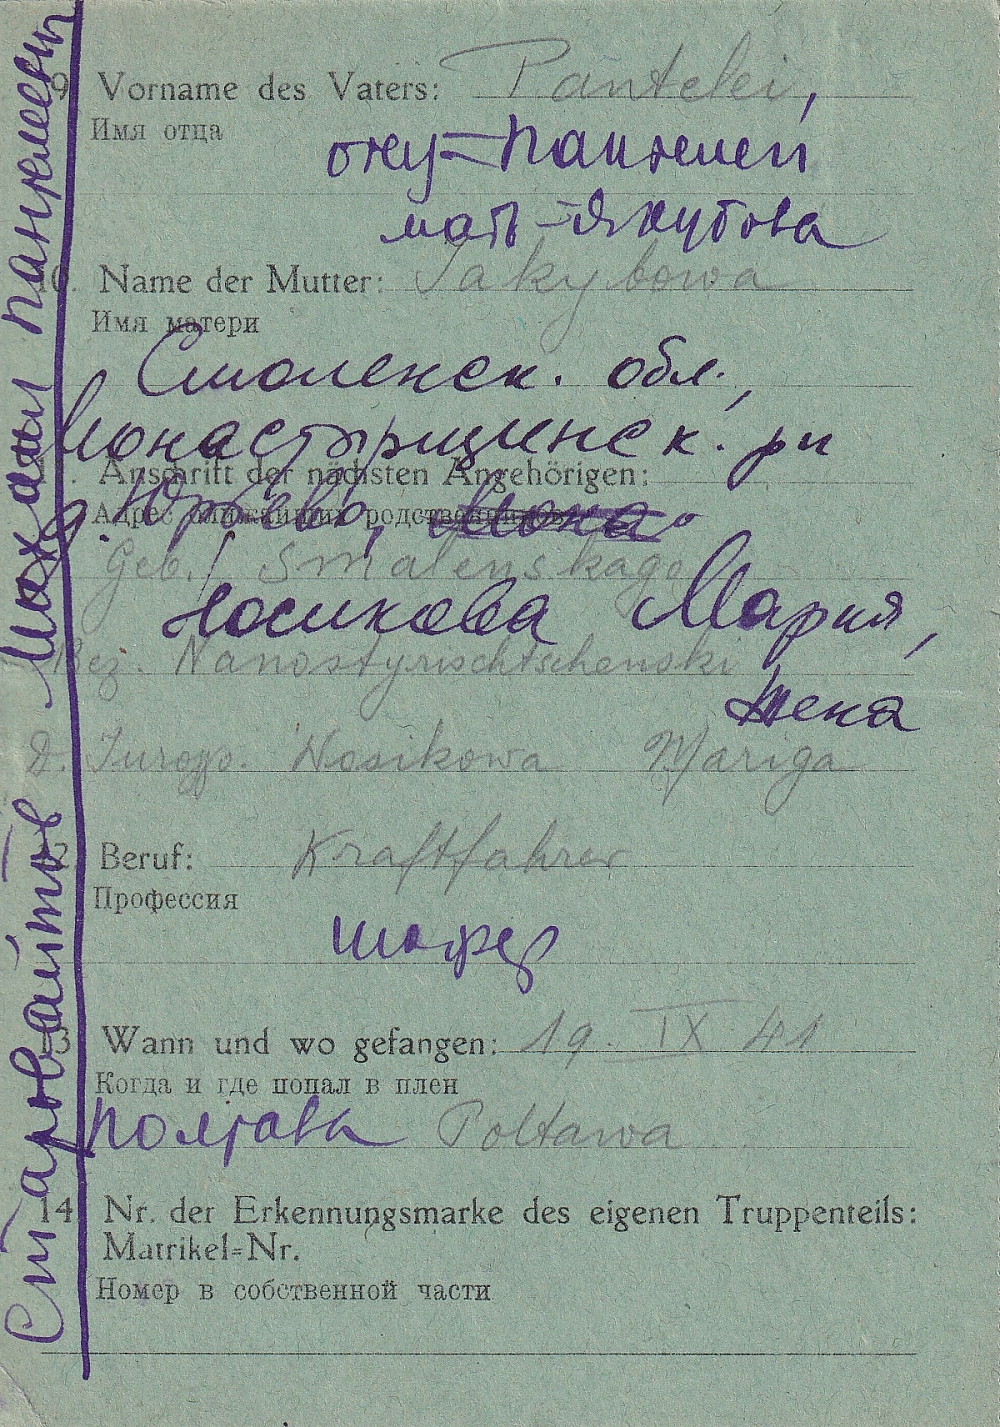 9. Vorname des Vaters: Pantelei,
Имя отца
отец – Пантелей
мать – Якубова
10. Name der Mutter: Jakybowa
Имя матери
Смоленск. обл.,
Монастырщинск. рн
Anschrift der nächsten Angehörigen:
Адрес ближайших родственников
д. Юрьево,
Geb. Smalenskago
Носикова Мария,
Bez. Nanostyrischtschenski
жена
D. Nosikowa Mariga
12. Beruf: Kraftfahrer
Профессия
шофер
13. Wann und wo gefangen: 19. IX 41
Когда и где попал в плен
Полтава Poltawa
14. Nr. der Erkennungsmarke des eigenen Truppenteils:
Matrikel=Nr.
Номер в собственной части
Пантелеевич